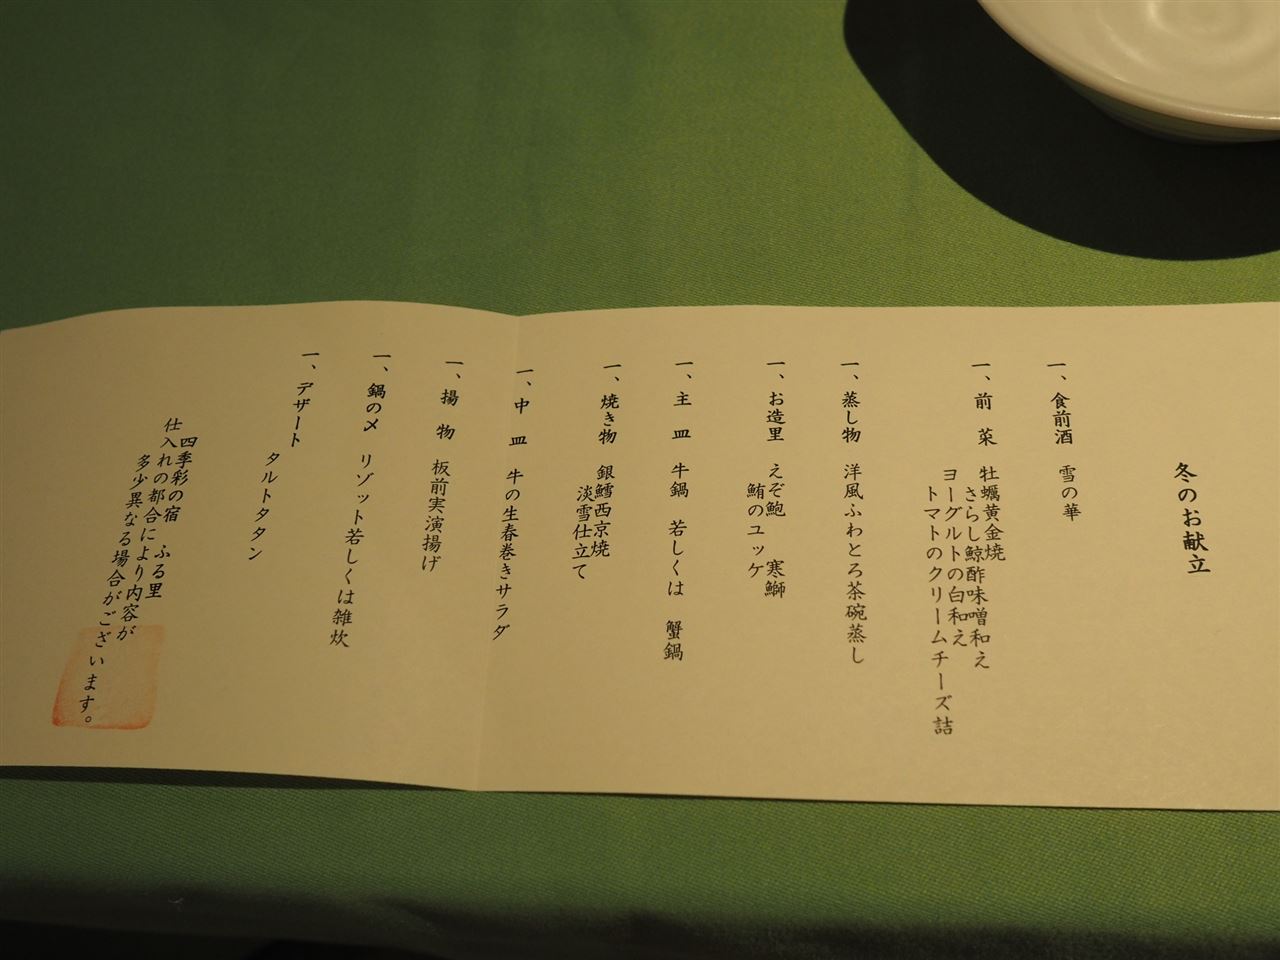 冬のお献立
一、食前酒　雪の華
一、前　菜　牡蠣黄金焼
さらし鯨酢味噌和え
ヨーグルトの白和え
トマトのクリームチーズ詰
一、蒸し物　洋風ふわとろ茶碗蒸し
一、お造里　えぞ鮑　寒鰤
鮪のユッケ
一、主　皿　牛鍋　若しくは　蟹鍋
一、焼き物　銀鱈西京焼
淡雪仕立て
一、中　皿　牛の生春巻きサラダ
一、揚　物　板前実演揚げ
一、鍋の〆　リゾット若しくは雑炊
一、デザート
タルトタタン
四季彩の宿　ふる里
仕入れの都合により内容が
多少異なる場合がございます。